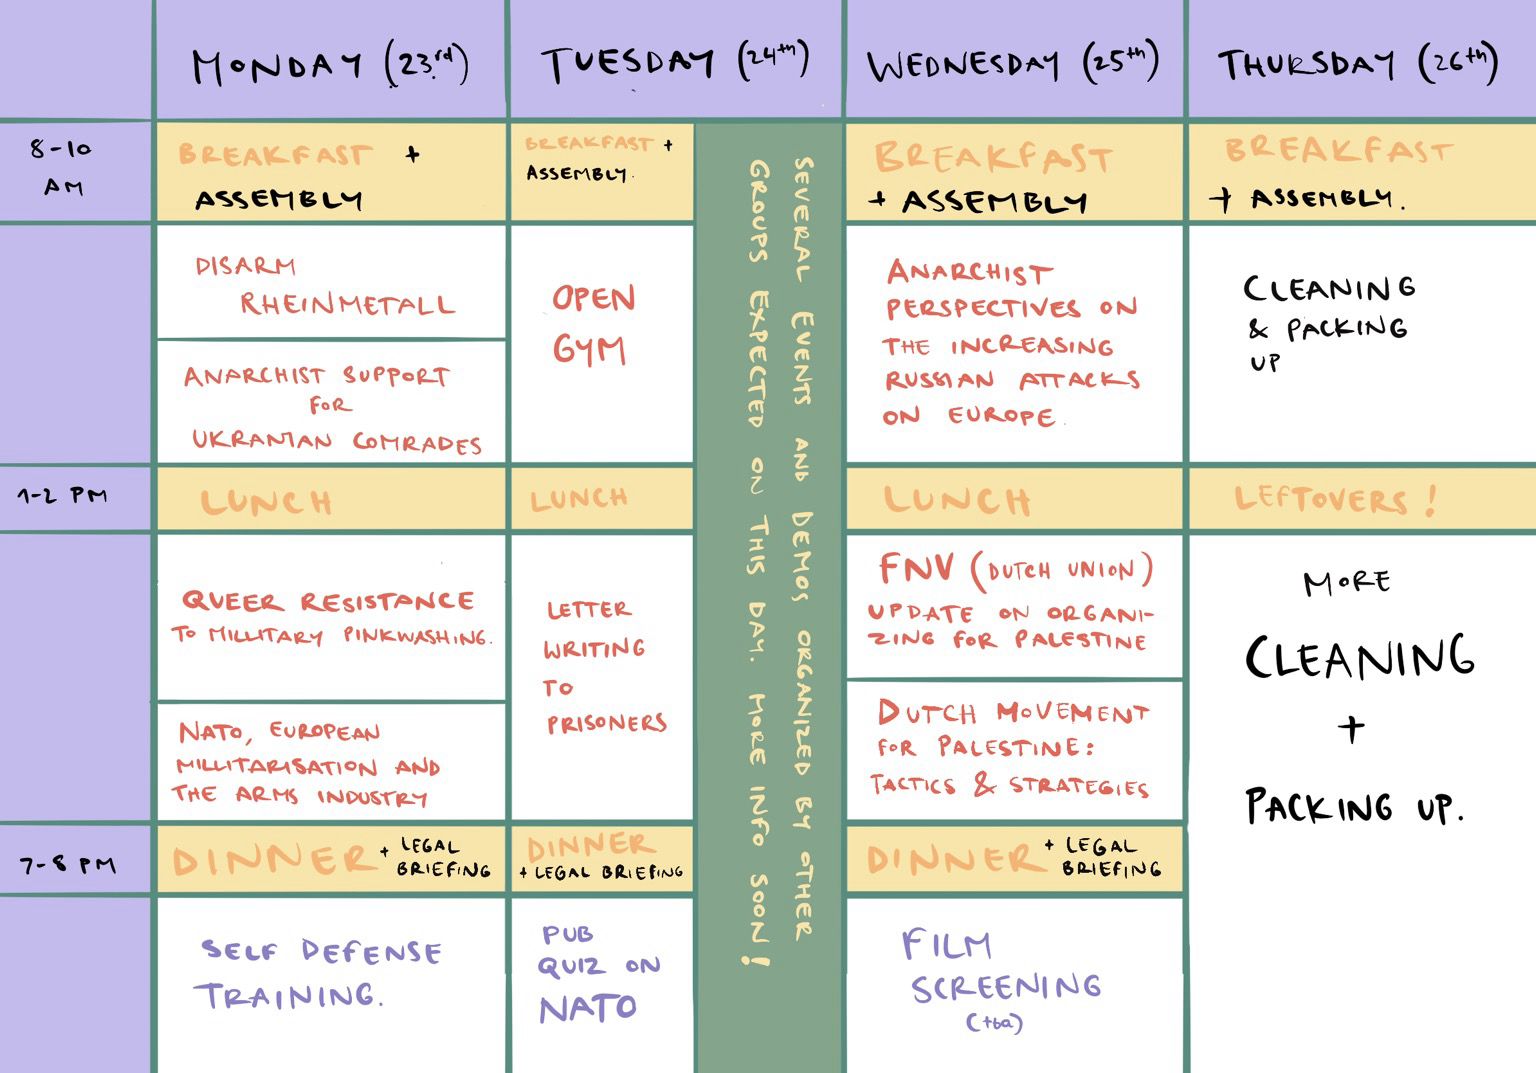 MONDAY (23rd)
TUESDAY (24th)
WEDNESDAY (25th)
THURSDAY (26th)
8-10
AM
BREAKFAST +
ASSEMBLY
BREAKFAST +
ASSEMBLY.
BREAKFAST
+ ASSEMBLY
BREAKFAST
+ ASSEMBLY.
DISARM
RHEINMETALL
ANARCHIST SUPPORT
FOR
UKRANIAN COMRADES
OPEN
GYM
SEVERAL EVENTS AND DEMOS ORGANIZED BY OTHER
GROUPS EXPECTED ON THIS DAY. MORE INFO SOON!
ANARCHIST
PERSPECTIVES ON
THE INCREASING
RUSSIAN ATTACKS
ON EUROPE.
CLEANING
& PACKING
UP
1-2 PM
LUNCH
LUNCH
LUNCH
LEFTOVERS!
QUEER RESISTANCE
TO MILLITARY PINKWASHING.
NATO, EUROPEAN
MILLITARISATION AND
THE ARMS INDUSTRY
LETTER
WRITING
TO
PRISONERS
FNV (DUTCH UNION)
UPDATE ON ORGANI-
ZING FOR PALESTINE
DUTCH MOVEMENT
FOR PALESTINE:
TACTICS & STRATEGIES
MORE
CLEANING
+
PACKING UP.
7-8 PM
DINNER + LEGAL
BRIEFING
DINNER
+ LEGAL BRIEFING
DINNER + LEGAL
BRIEFING
SELF DEFENSE
TRAINING.
PUB
QUIZ ON
NATO
FILM
SCREENING
(tba)